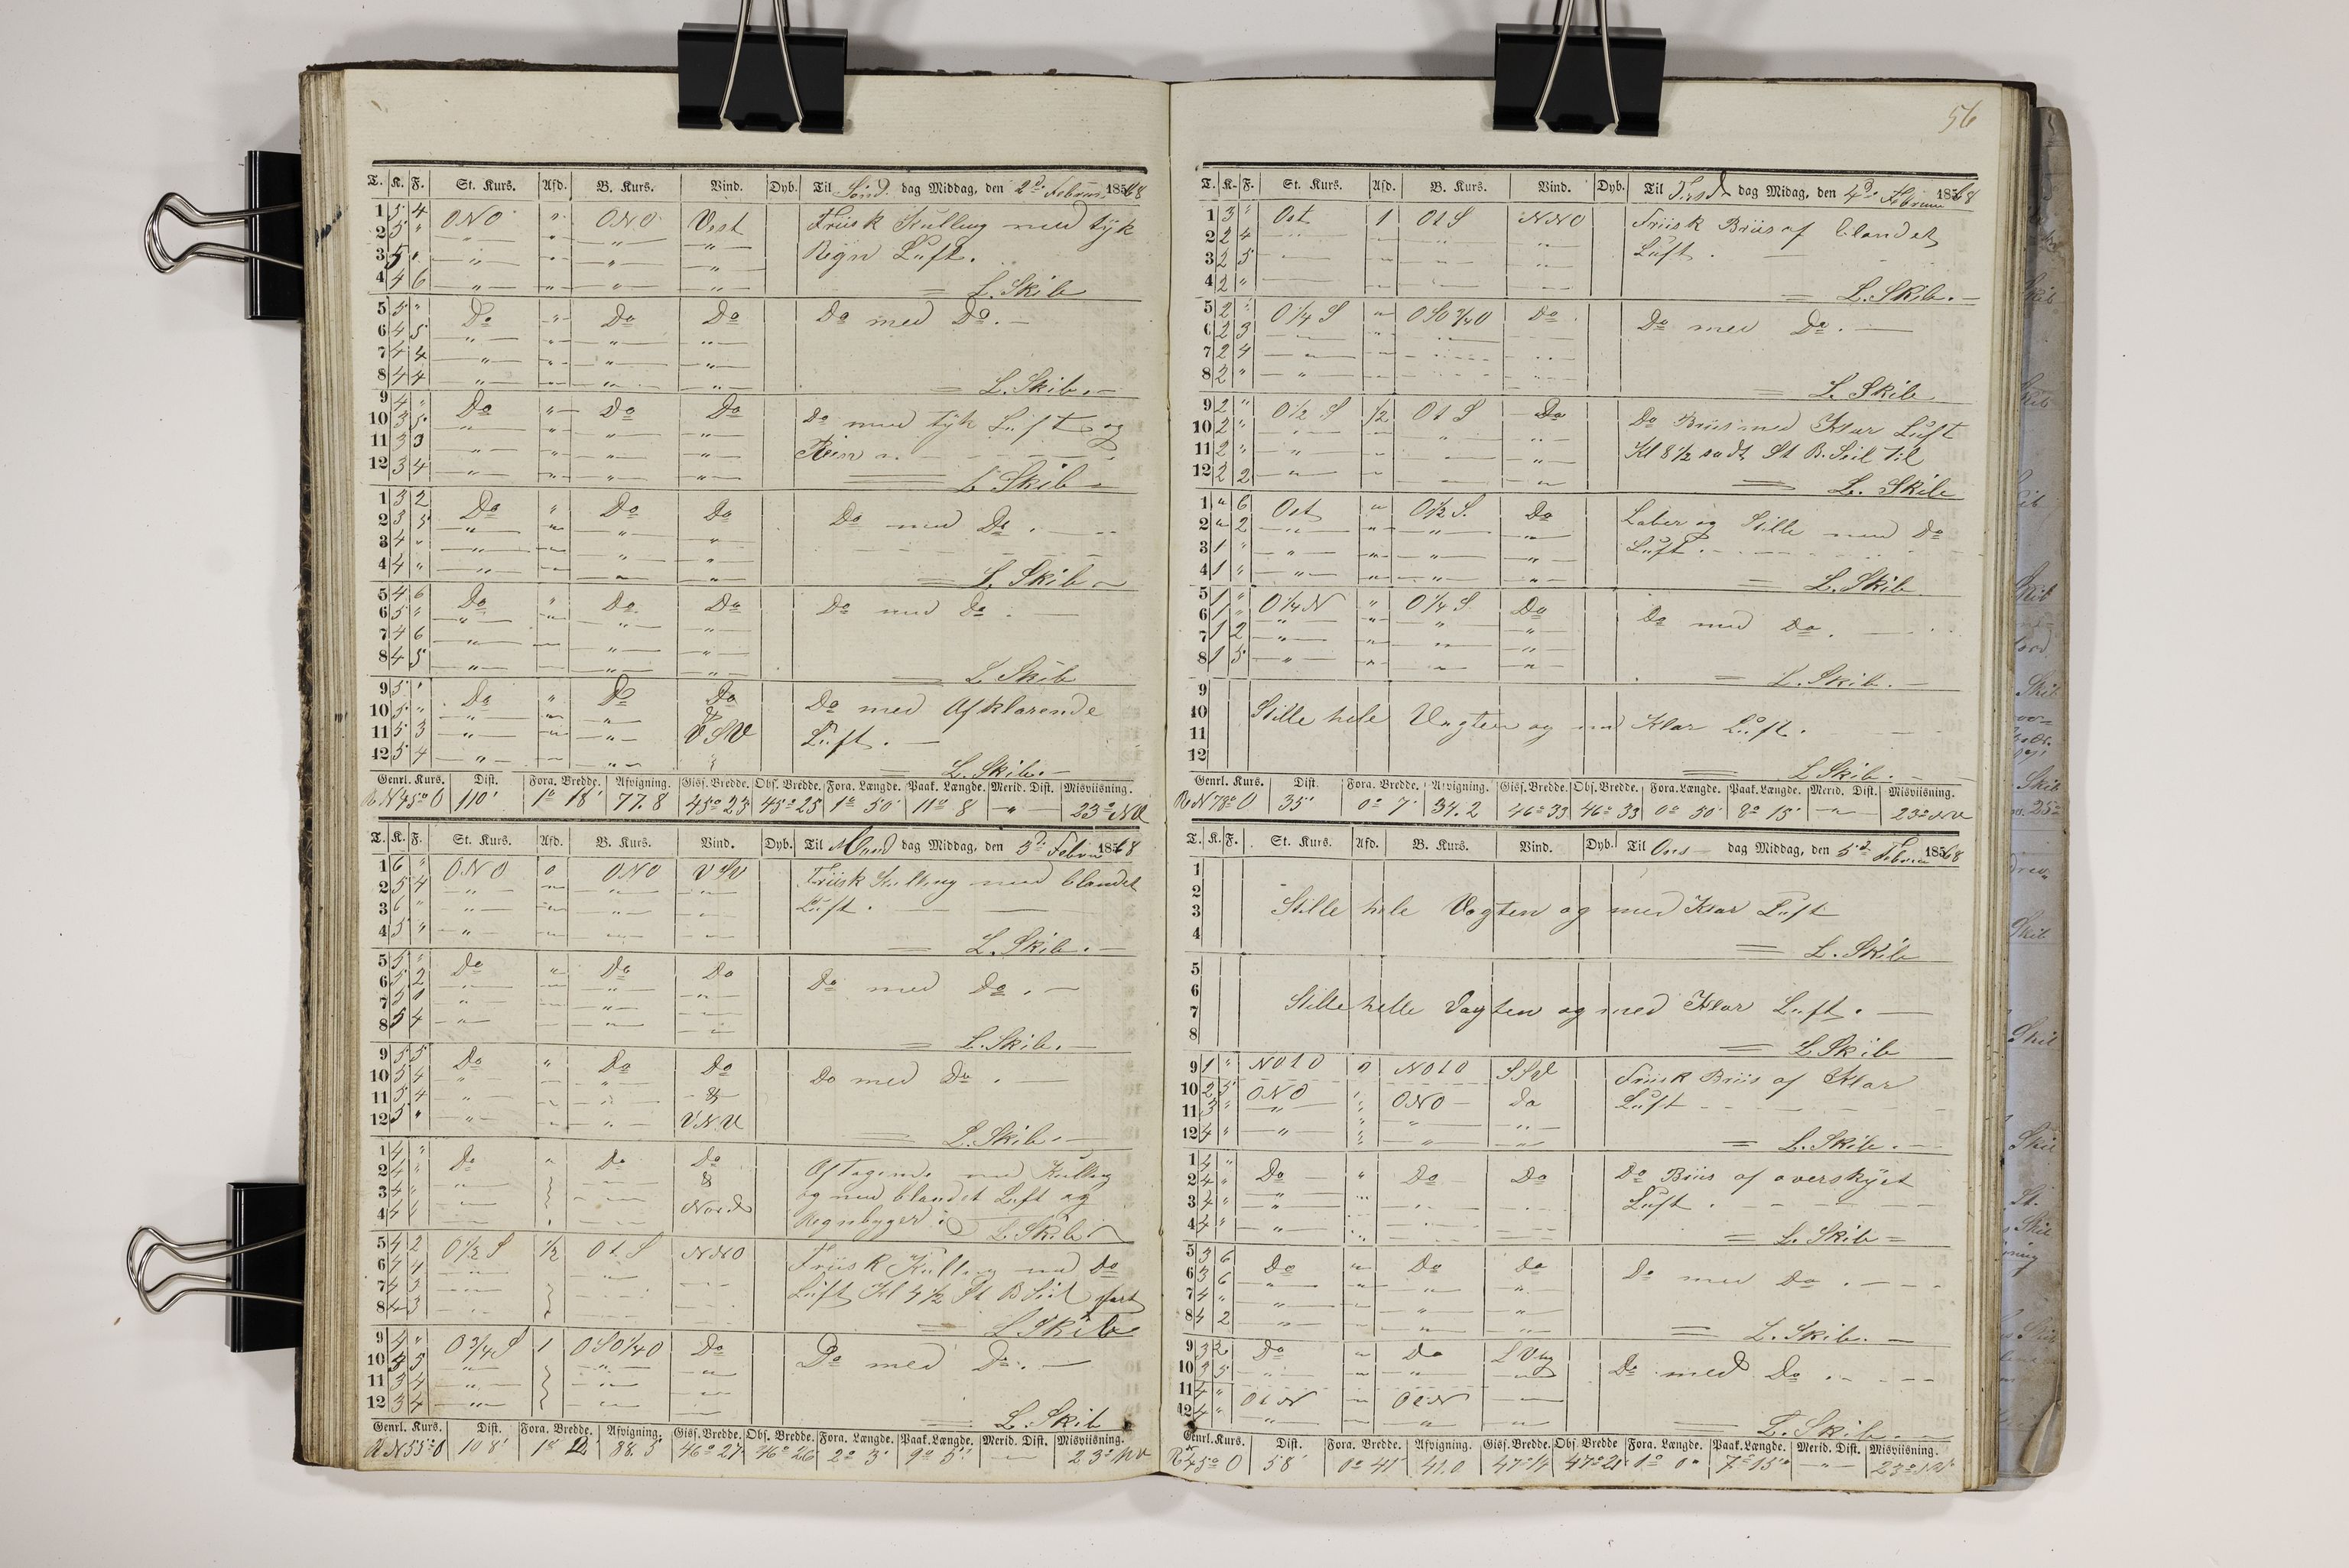 56
T. K. F. St. Kurs. Afd. B. Kurs. Vind. Dyb. Til Sönd. dag Middag, den 2d. Februar 1868
1 5 4 ONO " ONO Vest Friisk Kulling med tÿk
2 5 " " " " " Regn Luft.
3 5 " " " " "
4 4 6 " " " " L. Skib
5 5 " Do " Do Do Do med Do.
6 4 5 " " " "
7 4 4 " " " "
8 4 4 " " " " L. Skib.
9 4 " Do " Do Do Do med tÿk Luft og
10 3 5 " " " "
11 3 3 " " " "
12 3 4 " " " " L Skib
1 3 2 Do " Do Do Do med Do.
2 3 5 " " " "
3 4 " " " " "
4 4 " " " " " L. Skib
5 4 6 Do " Do Do Do med Do.
6 5 " " " " "
7 4 6 " " " "
8 4 5 " " " " L Skib
9 5 " Do " Do Do Do med Afklarende
10 5 " " " " &
11 5 3 " " " VSV Luft.
12 5 4 " " " " L. Skib.
Genrl. Kurs. Dist. Fora. Bredde. Afvigning. Gisf. Bredde. Obs. Bredde. Fora. Længde. Paak. Længde. Merid. Dist. Misviisning.
R N45° O 110' 1° 18' 77.8 45° 23 45° 25 1° 50' 11° 8 " 23° NV
T. K. F. St. Kurs. Afd. B. Kurs. Vind. Dyb. Til Mand dag Middag, den 3d. Februar 1868
1 6 " ONO 0 ONO VSV Friisk Kulling med blandet
2 5 4 " " " "
3 6 " " " " " Luft.
4 5 " " " " " L. Skib.
5 5 " Do " Do Do
6 5 2 " " " " Do med Do.
7 5 1 " " " "
8 5 4 " " " " L. Skib.
9 5 5 Do " Do Do
10 5 4 " " " " Do med Do.
11 5 4 " " " &
12 5 " " " " VNV L. Skib.
1 4 " Do " Do Do Aftagende med Kulling
2 4 " " " " &
3 4 " " " " Nord og med blandet Luft og
4 4 " Regnbyger L. Skib
5 4 2 O½S ½ O t. S NNO Friisk Kulling med Do
6 4 4 " " "
7 4 3 Luft Kl 4½ St B Seil fast
8 4 3 L Skib
9 4 " O¾S 1 OSO¼O Do
10 3 5 " " " Do med Do.
11 3 4 " " "
12 3 4 " " " L. Skib
Genrl. Kurs. Dist. Fora. Bredde. Afvigning. Gisf. Bredde. Obs. Bredde. Fora. Længde. Paak. Længde. Merid. Dist. Misviisning.
R N55° O 108' 1° 2' 88.5 46° 27 46° 26 2° 3' 9° 5' 23° NV
T. K. F. St. Kurs. Afd. B. Kurs. Vind. Dyb. Til Tirsd dag Midag, den 4d. Februar 1868
1 3 " Ost 1 O t S NNO Friisk Briis af blandet
2 2 4 " " " " Luft.
3 2 5 " " " "
4 2 " " " " " L. Skib.
5 2 " O¼S " OSO¾O Do
6 2 3 " " " " Do med Do.
7 2 4 " " " "
8 2 " " " " " L. Skib
9 2 " O½S ½ O t S Do Do Briis med Klar Luft
10 2 " " " " "
11 2 " " " " " Kl 8½ sadt St B. Seil Til
12 2 2 " " " " L. Skib
1 " 6 Ost " O½S. Do Laber og Stille med Do
2 " 2 " " " "
3 1 " " " " " Luft.
4 1 " " " " " L. Skib
5 1 " O¼N " O¼S Do
6 1 " " " " " Do med Do.
7 1 2 " " " "
8 1 5 " " " " L. Skib.
9
10 Stille hele Vagten og med Klar Luft.
11
12 L Skib.
Genrl. Kurs. Dist. Fora. Bredde. Afvigning. Gisf. Bredde. Obs. Bredde. Fora. Længde. Paak. Længde. Merid. Dist. Misviisning.
R N78° O 35' 0° 7' 34.2 46° 33 46° 33 0° 50' 8° 15' " 23° NV
T. K. F. St. Kurs. Afd. B. Kurs. Vind. Dyb. Til Ons dag Middag, den 5d. Februar 1868
1
2
3 Stille hele Vagten og med Klar Luft
4 L. Skib
5
6
7 Stille helle Vagten og med Klar Luft.
8 L Skib
9 1 " NO t O 0 NO t O SSV Friisk Briis af Klar
10 2 5 ONO " ONO Do
11 3 " " " " " Luft
12 4 " " " " " L. Skib.
1 4 " Do " Do Do Do Briis af overskÿet
2 4 "
3 4 " " " " " Luft.
4 4 " " " " " L. Skib
5 3 6 Do " Do Do
6 3 6 " " " " Do med Do.
7 4 " " " " "
8 4 2 " " " " L. Skib.
9 3 2 Do " Do
10 3 5 " " " " Do med Do.
11 4 " O t N " O t N "
12 4 " " " " " L. Skib.
Genrl. Kurs. Dist. Fora. Bredde. Afvigning. Gisf. Bredde. Obs. Bredde. Fora. Længde. Paak. Længde. Merid. Dist. Misviisning.
R N45° O 58' 0° 41' 41.0 47° 14 47° 21 1° 0" 7° 15' " 23° NV